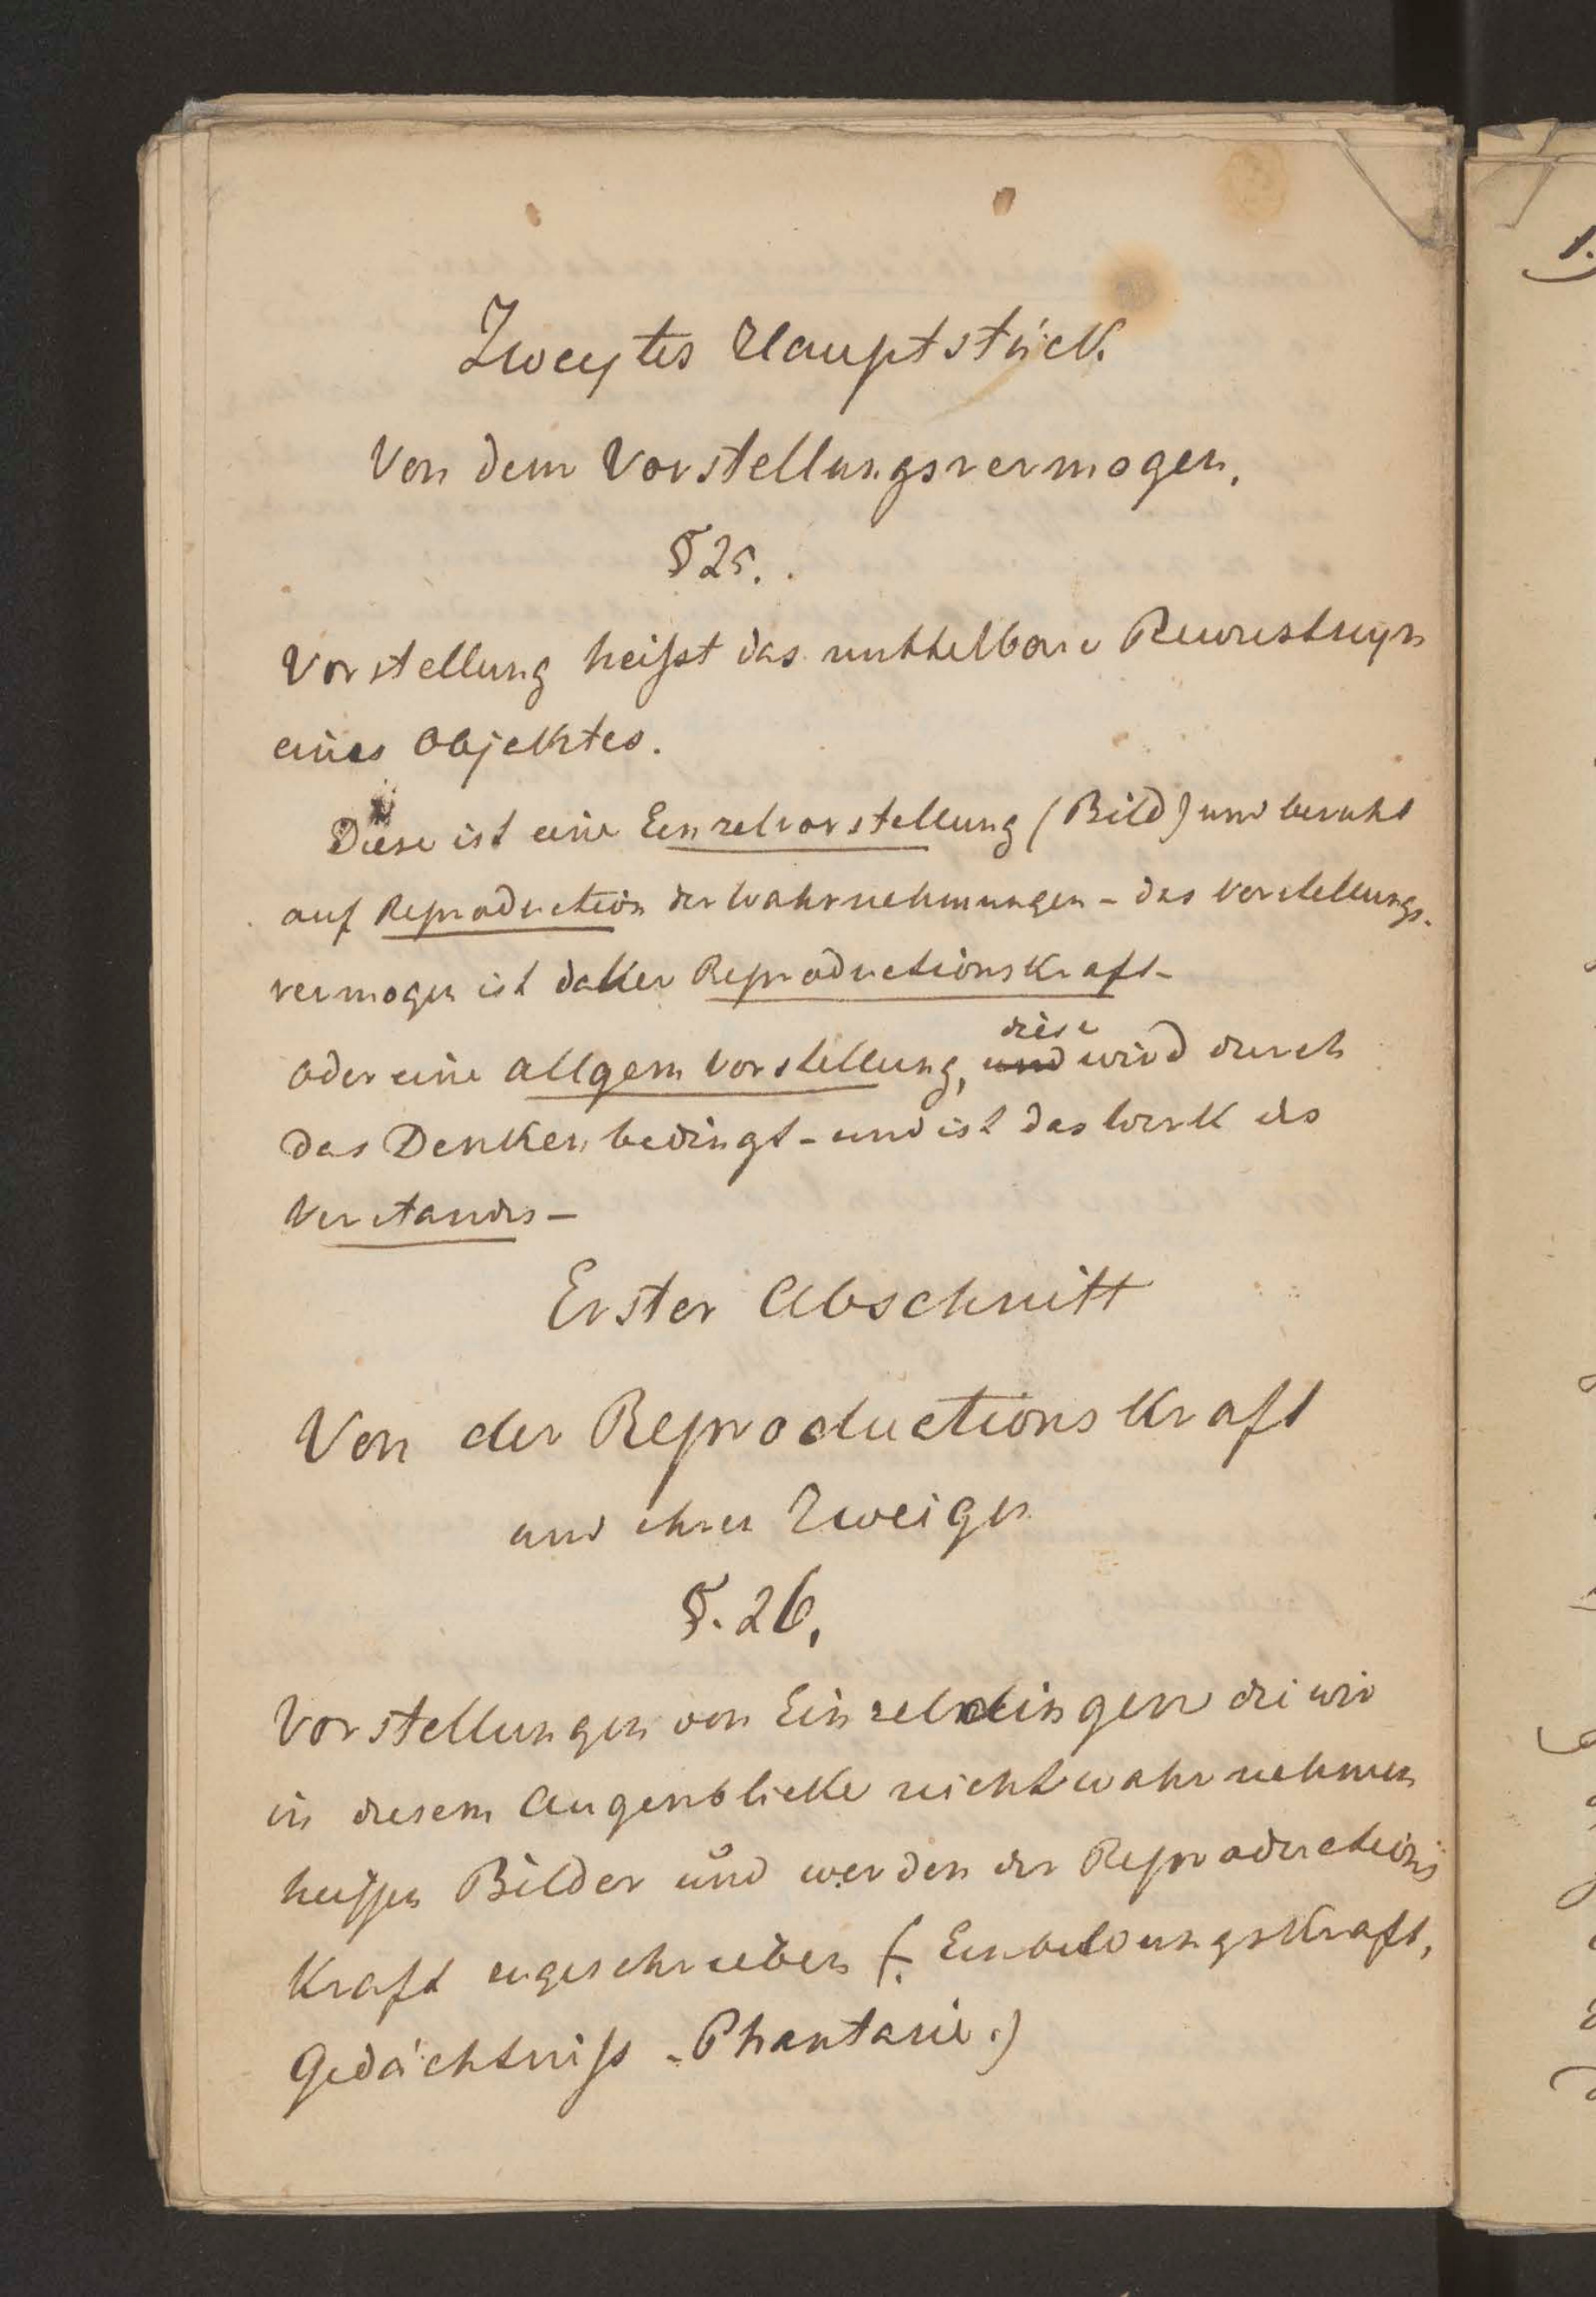 Zweytes Hauptstück.
Von dem Vorstellungsvermogen.
§ 25.
Vorstellung heißt das mittelbare Bewustseyn
eines Objektes.
Diese ist eine Einzelvorstellung (Bild) und beruht
auf Reproduction der Wahrnehmungen - das Vorstellungs-
vermogen ist daher Reproductionskraft -
oder eine allgem Vorstellung, und diese wird durch
das Denken bedingt - und ist das Werk des
Verstandes -
Erster Abschnitt
Von der Reproductionskraft
und ihren Zweigen
§. 26.
Vorstellungen von Einzeldingen die wir
in diesem Augenblicke nicht wahrnehmen
heissen Bilder und werden der Reproductions
Kraft zugeschrieben (. Einbildungskraft,
Gedächtniß - Phantasie .)
1.